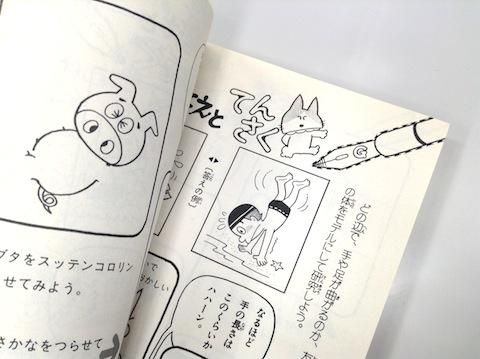 ブタをスッテンコロリン
せてみよう。
さかなをつらせて
えと
てん
さく
どの辺で、手や足が曲がるのか、
の体をモデルにして研究しよう。
〔答えの例〕
なるほど
手の長さは
このくらいか
ハハーン。
で
かしい